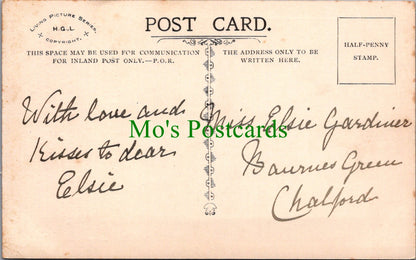 LIVING PICTURE SERIES.
H.G.L
COPYRIGHT.
POST CARD.
HALF-PENNY
STAMP.
THIS SPACE MAY BE USED FOR COMMUNICATION
FOR INLAND POST ONLY.—P.O.R.
THE ADDRESS ONLY TO BE
WRITTEN HERE.
With love and
Kisses to dear
Elsie
Miss Elsie Gardiner
Bournes Green
Chalford
Mo's Postcards